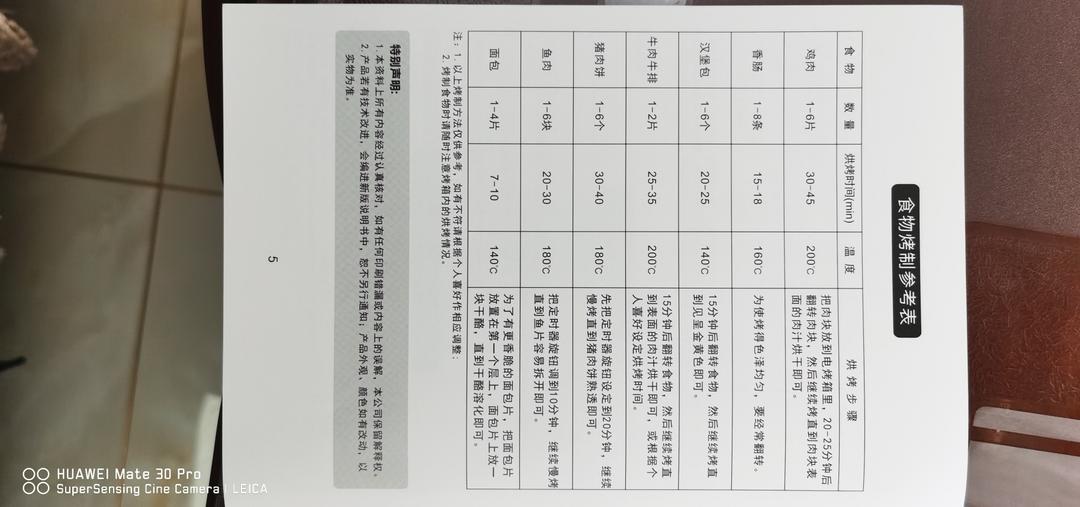 食物烤制参考表
食 物 数 量 烘烤时间(min) 温 度 烘 烤 步 骤
鸡肉 1-6片 30-45 200℃ 把肉块放到电烤箱里，20-25分钟后
翻转肉块，然后继续烤直到肉块表
面的肉汁烘干即可。
香肠 1-8条 15-18 160℃ 为使烤得色泽均匀，要经常翻转。
汉堡包 1-6个 20-25 140℃ 15分钟后翻转食物，然后继续烤直
到见呈金黄色即可。
牛肉牛排 1-2片 25-35 200℃ 15分钟后翻转食物，然后继续烤直
到表面的肉汁烘干即可，或根据个
人喜好设定烘烤时间。
猪肉饼 1-6个 30-40 180℃ 先把定时器旋钮设定到20分钟，继续
慢烤直到猪肉饼熟透即可。
鱼肉 1-6块 20-30 180℃ 把定时器旋钮调到10分钟，继续慢烤
直到鱼片容易拆开即可。
面包 1-4片 7-10 140℃ 为了有更香脆的面包片，把面包片
放置在第一个层上，面包片上放一
块干酪，直到干酪溶化即可。
注：1. 以上烤制方法仅供参考，如有不符请根据个人喜好作相应调整；
2. 烤制食物时请随时注意烤箱内的烘烤情况。
特别声明:
1. 本资料上所有内容经过认真核对，如有任何印刷错漏或内容上的误解，本公司保留解释权。
2. 产品若有技术改进，会编进新版说明书中，恕不另行通知；产品外观、颜色如有改动，以
实物为准。
5
HUAWEI Mate 30 Pro
SuperSensing Cine Camera | LEICA